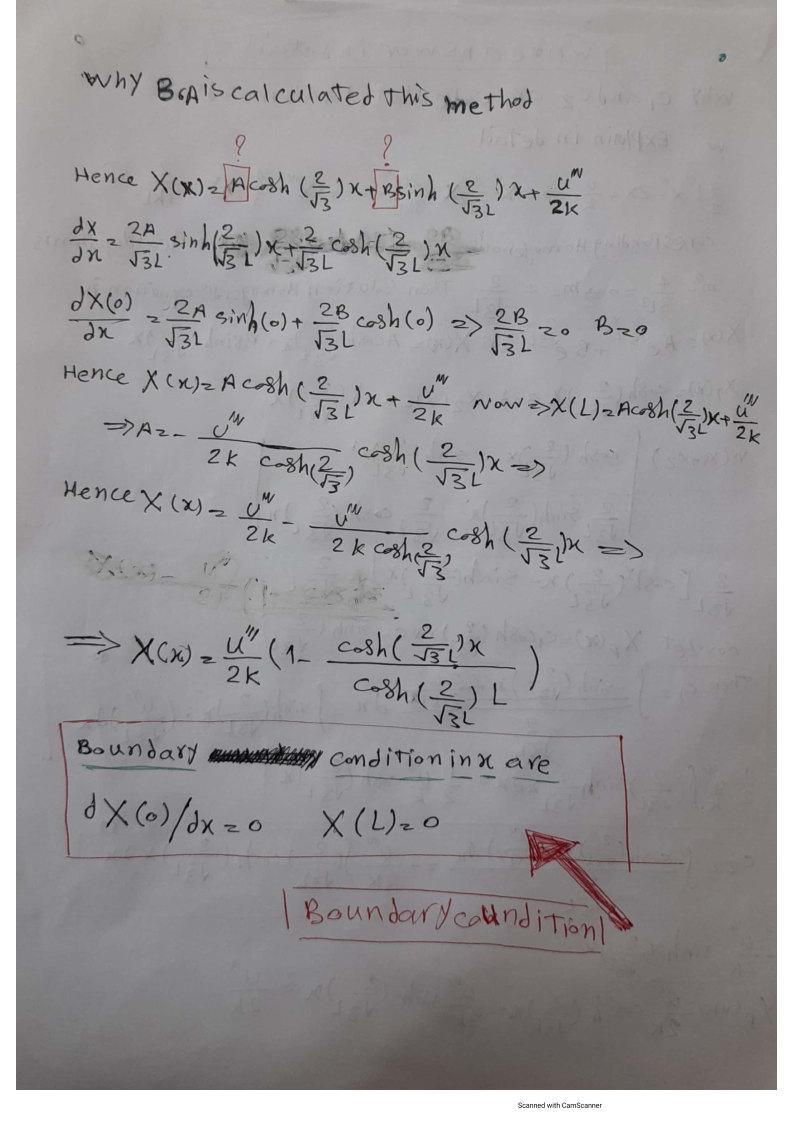 Why B&A is calculated this method
? ?
Hence X(x) = A cosh (2/√3)x + B sinh (2/√3L)x + u'''/2k
dX/dx = 2A/√3L sinh(2/√3L)x + 2/√3L cosh(2/√3L)x
dX(0)/dx = 2A/√3L sinh(0) + 2B/√3L cosh(0) => 2B/√3L = 0 B=0
Hence X(x) = A cosh(2/√3L)x + u'''/2k Now => X(L) = A cosh(2/√3L)x + u'''/2k
=> A = - u'''/2k cosh(2/√3) cosh(2/√3L)x =>
Hence X(x) = u'''/2k - u'''/2k cosh(2/√3) cosh(2/√3L)x =>
=> X(x) = u'''/2k (1 - cosh(2/√3L)x / cosh(2/√3L)L)
Boundary condition in x are
dX(0)/dx = 0 X(L) = 0
Boundary coundition
Scanned with CamScanner